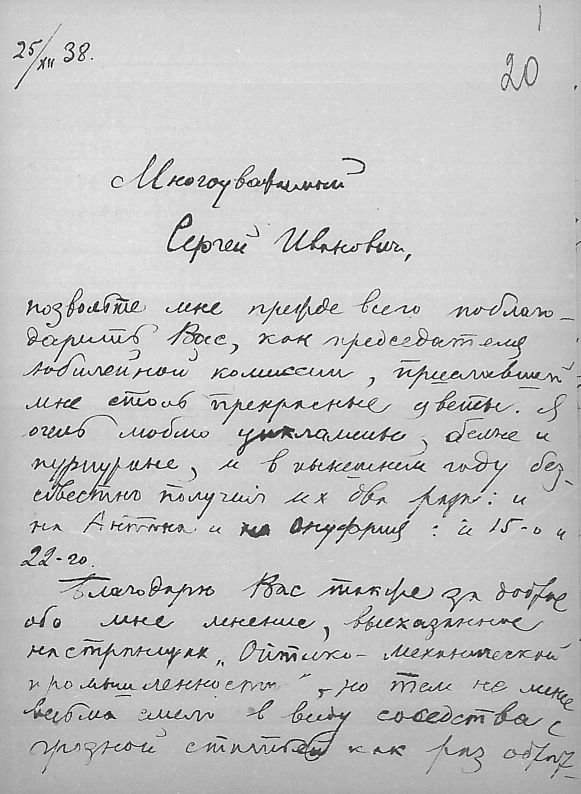 1
25/XII 38.
20
Многоуважаемый
Сергей Иванович,
позвольте мне прежде всего поблаго-
дарить Вас, как председателя
юбилейной комиссии, приславшей
мне столь прекрасные цветы. Я
очень люблю цикламены, белые и
пурпурные, и в нынешнем году
получил их два раза: и
на Антона и на Онуфрия: и 15-о и
22-го.
Благодарю Вас также за доброе
обо мне мнение, высказанное
на страницах „Оптико-механической
промышленности", но тем не менее
весьма в виду соседства с
грязной как раз